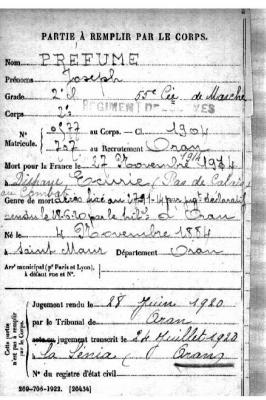 PARTIE À REMPLIR PAR LE CORPS.
Nom PRÉFUME
Prénoms Joseph
Grade 2e Cl 55e Cie de Marche
Corps 2e RÉGIMENT DE
N° 0577 au Corps. — Cl. 1904
Matricule. 707 au Recrutement Oran
Mort pour la France le 27 Novembre 1914
à Ecurie (Pas de Calais)
Genre de mort
rendu le 18-6-20 par le à Oran
Né le 4 Novembre 1884
à Saint Maur Département Oran
Arrt municipal (pr Paris et Lyon),
à défaut rue et N°.
Cette partie n'est pas à remplir par le Corps.
Jugement rendu le 28 Juin 1920
par le Tribunal de Oran
acte ou jugement transcrit le 24 Juillet 1920
à La Sénia (Oran)
N° du registre d'état civil
269-706-1922. [26434]